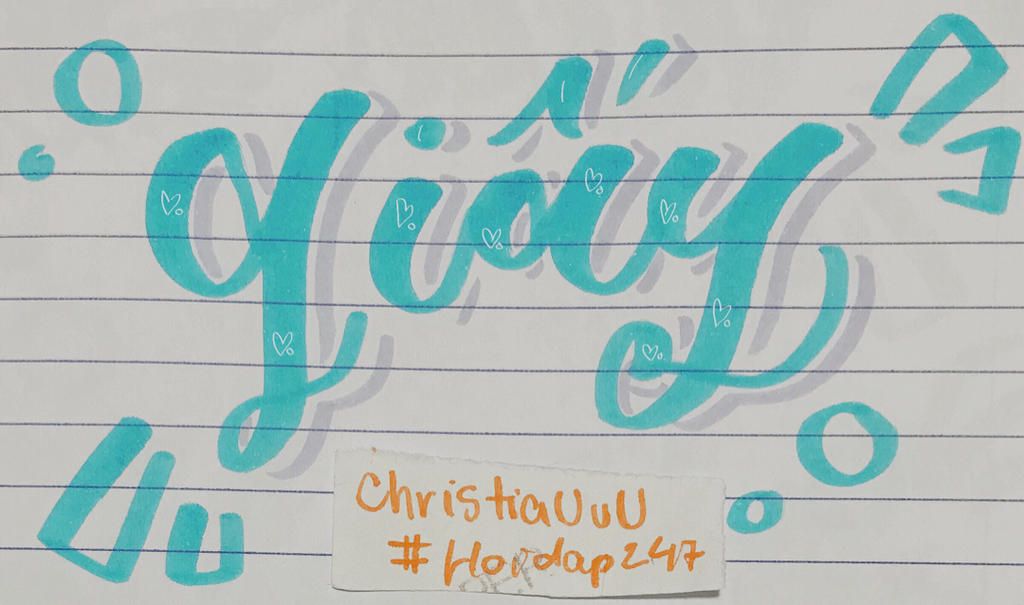 giấy
ChristiaUuU
#Hoidap247